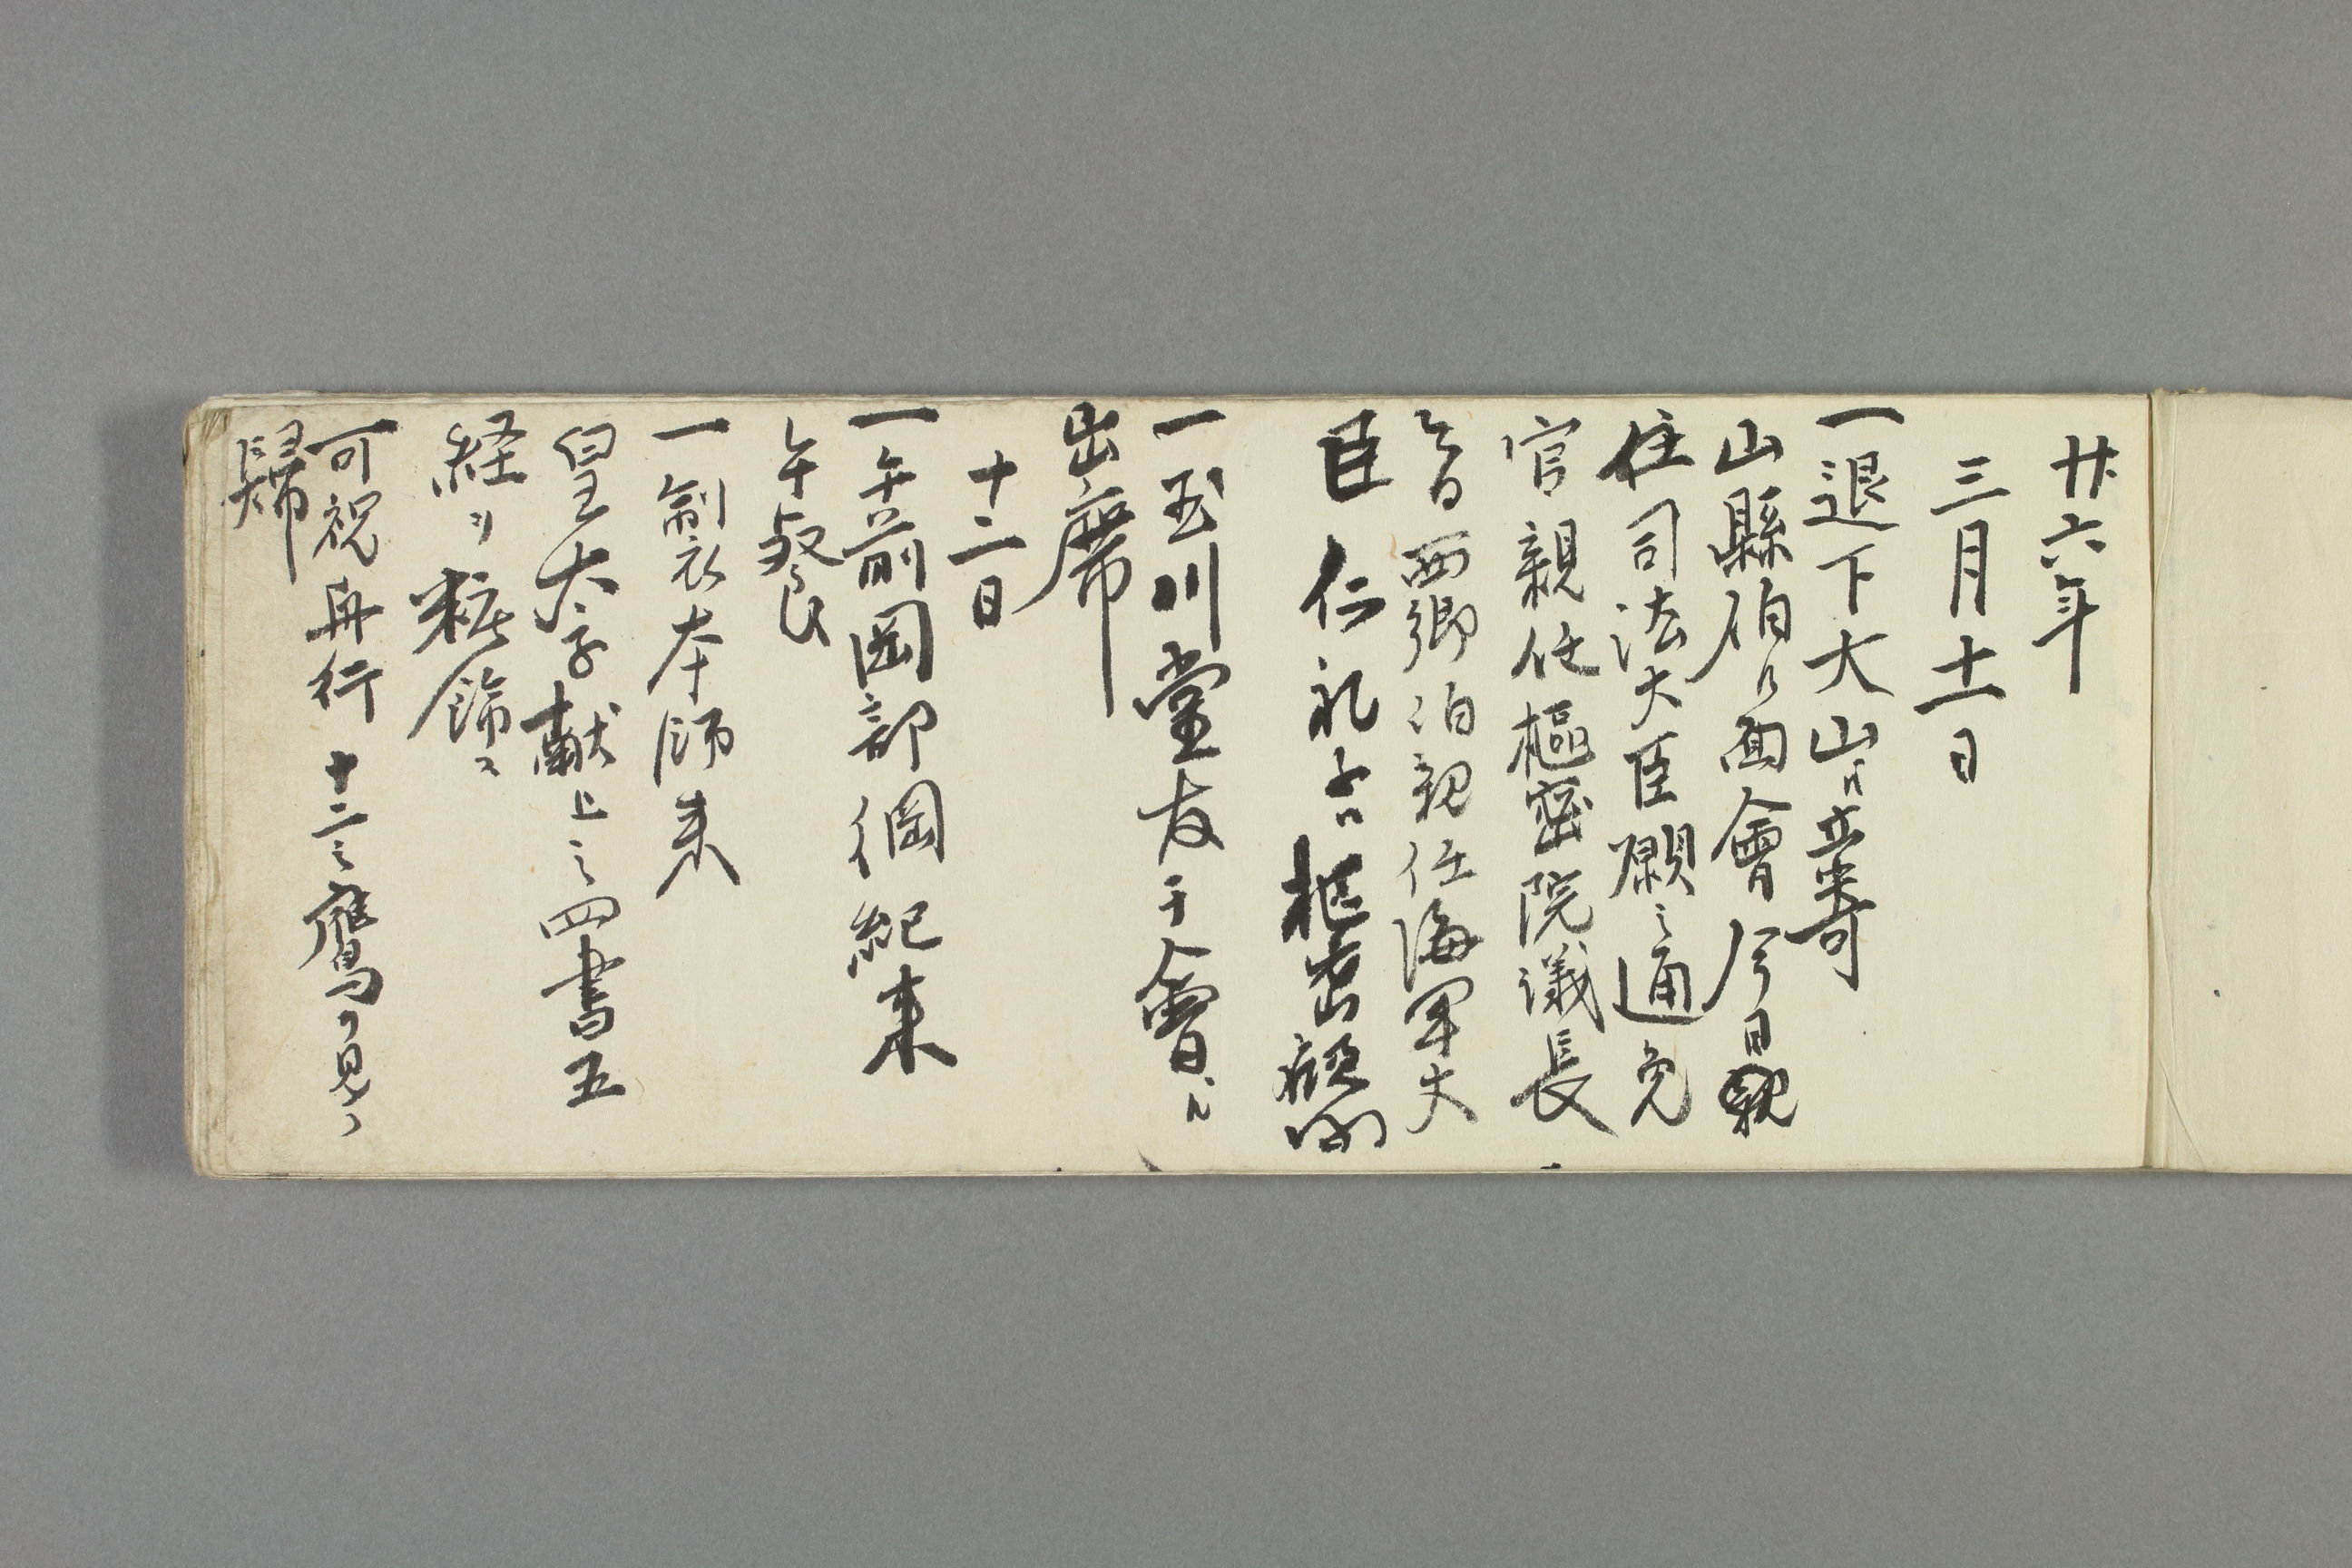 廿六年
三月十一日
一退下大山ニ立寄
山縣伯ニ面會今日親
任司法大臣願之通免
官親任樞密院議長
今日西郷伯親任海軍大
臣仁礼子ハ枢密顧問
一玉川堂友千會ニ
出席
十二日
一午前岡部綱紀来
午餐
一剣衣本師来
皇太子献上之四書五
経ノ粧飾
可祝再行十二之鷹ヲ見テ
歸